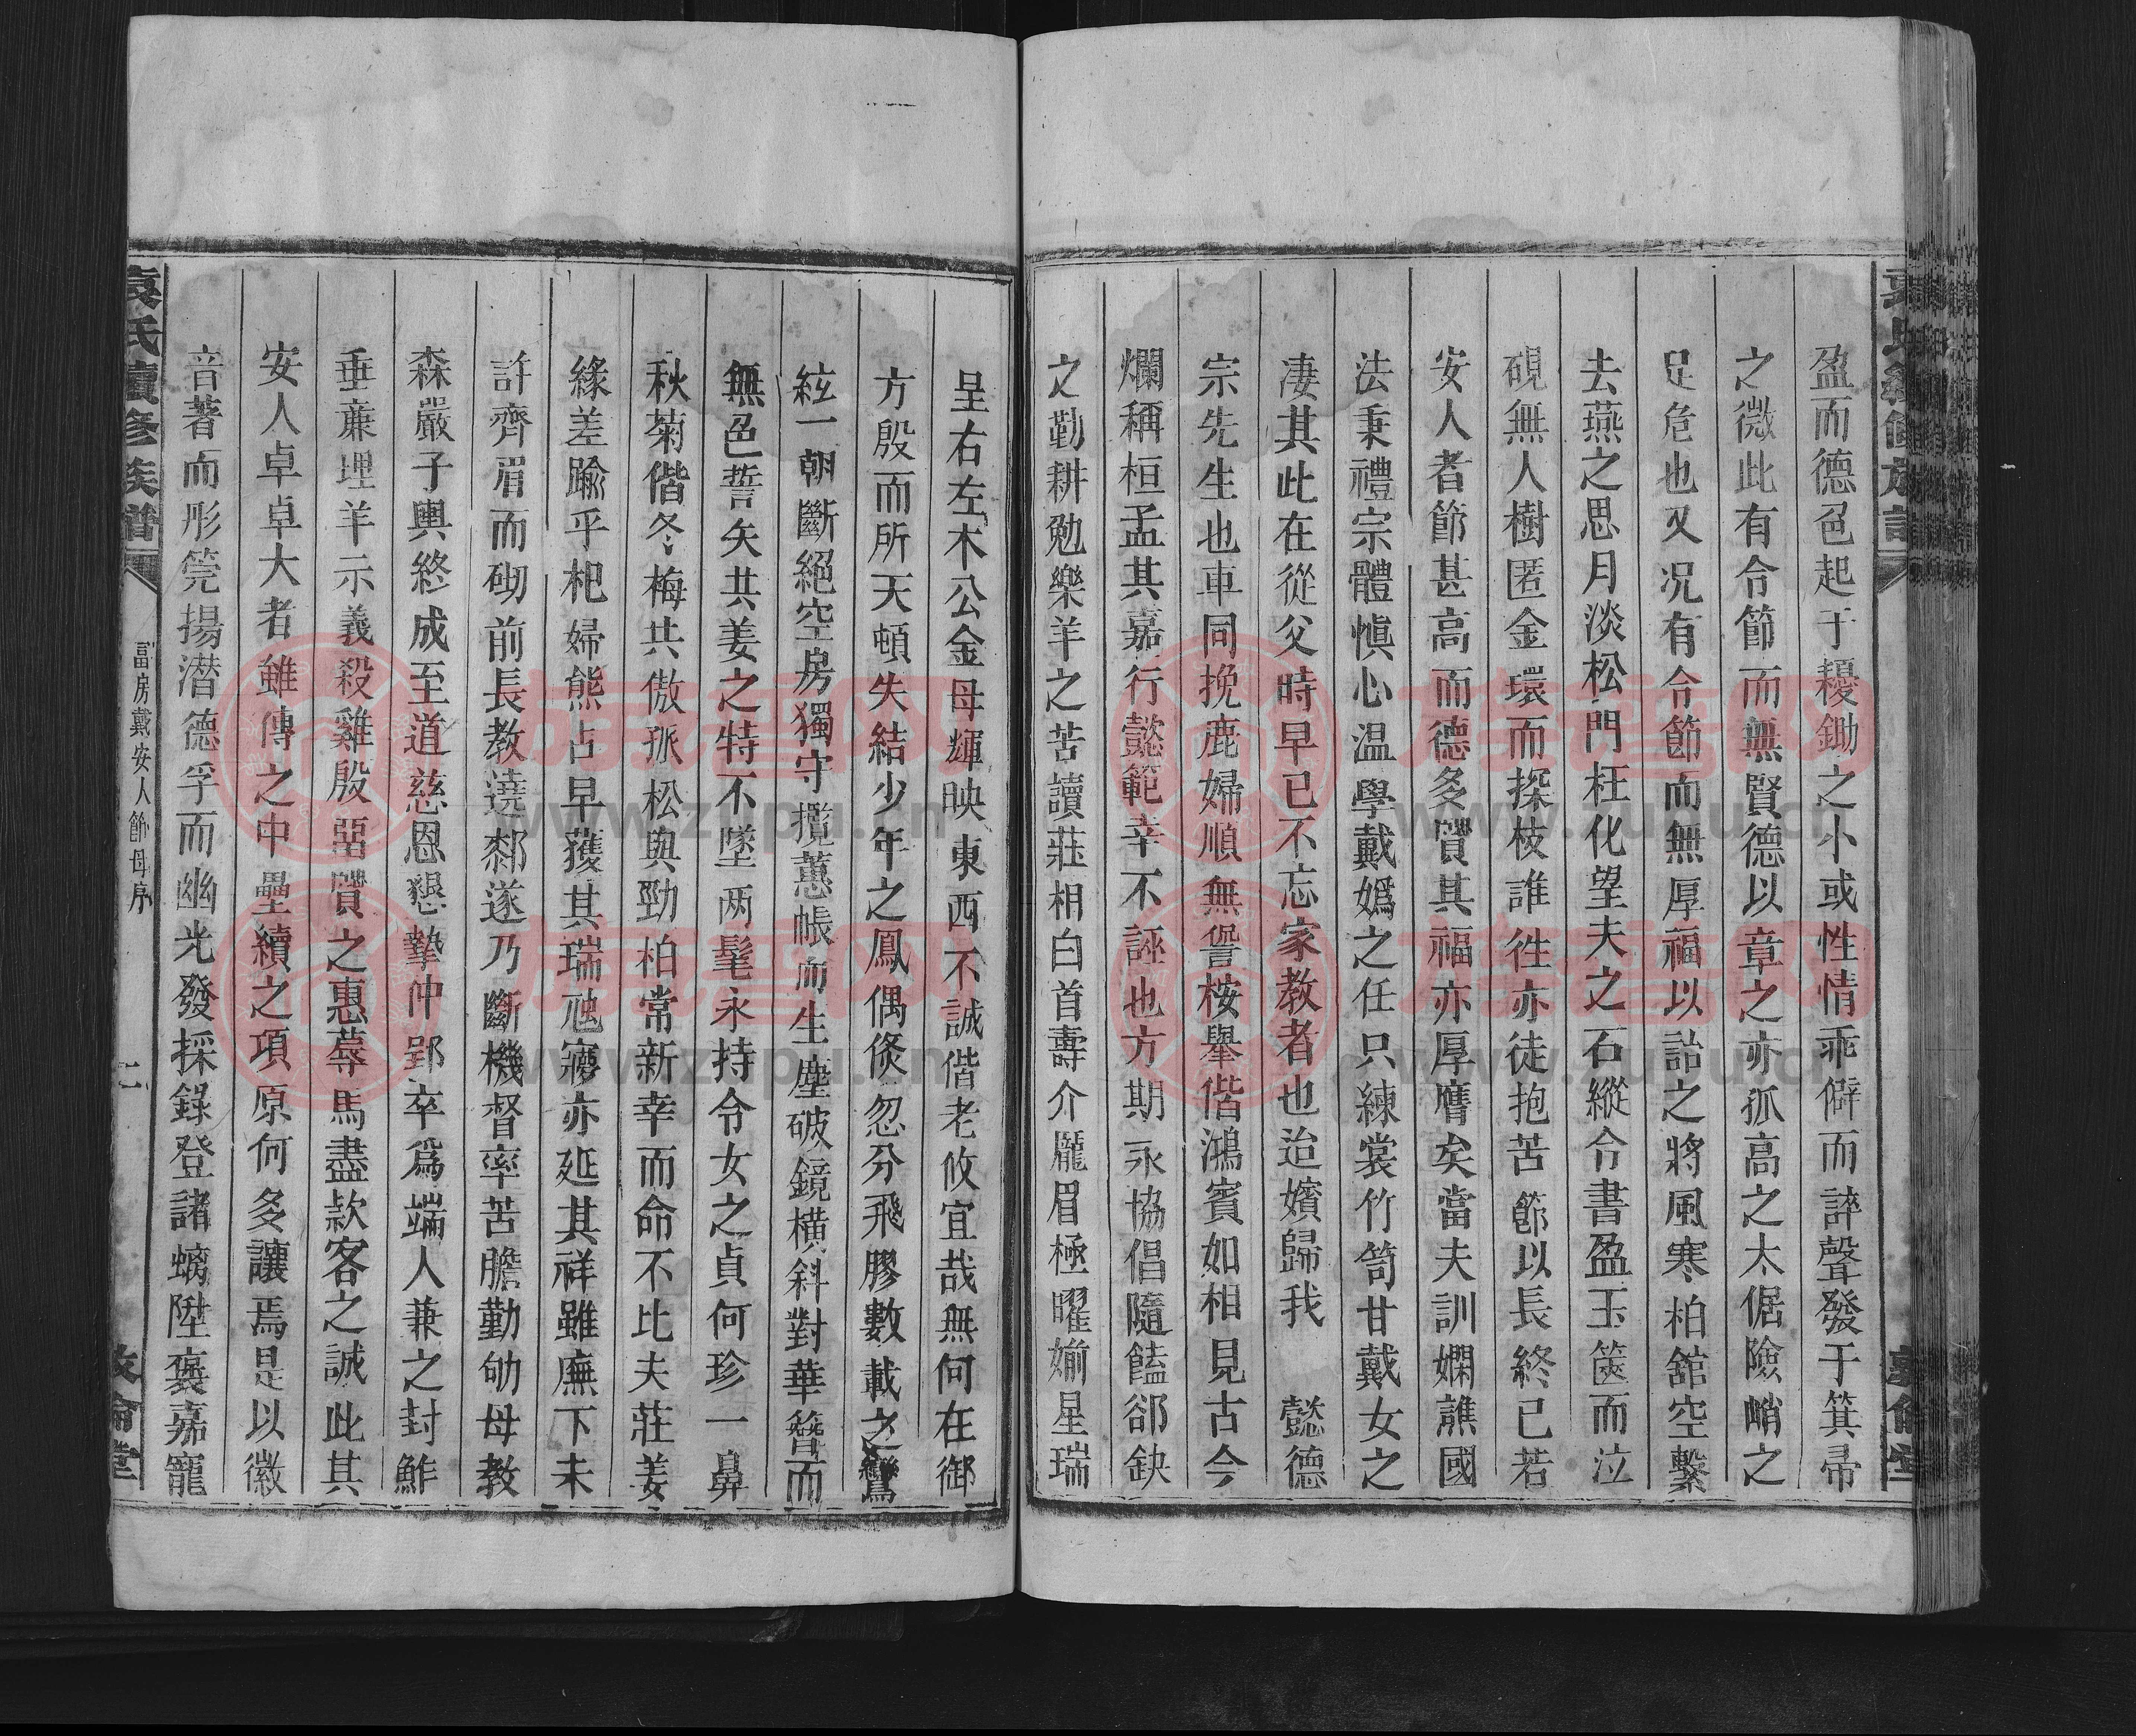 盈而德色起于耰鋤之小或性情乖僻而誶聲發于箕帚
之微此有令節而無賢德以章之亦孤高之太倨險峭之
足危也又况有令節而無厚福以詒之將風寒柏舘空繫
去燕之思月淡松門枉化望夫之石縱令書盈玉篋而泣
硯無人樹匿金環而探枝誰徃亦徒抱苦節以長終已若
安人者節甚高而德多賢其福亦厚膺矣當夫訓嫻譙國
法秉禮宗體愼心温學戴嬀之任只練裳竹笥甘戴女之
凄其此在從父時早已不忘家教者也迨嬪歸我 懿德
宗先生也車同挽鹿婦順無訾桉舉偕鴻賓如相見古今
爛稱桓孟其嘉行懿範幸不誣也方期永協倡隨饁郤缺
之勤耕勉樂羊之苦讀莊相白首壽介龎眉極曜媊星瑞
呈右左木公金母輝映東西不誠偕老攸宜哉無何在御
方殷而所天頓失結少年之鳳偶倏忽分飛膠數載之鸞
絃一朝斷絕空房獨守攬蕙帳而生塵破鏡橫斜對華簪而
無色誓矢共姜之特不墜两髦永持令女之貞何珍一鼻
秋菊偕冬梅共傲孤松與勁柏常新幸而命不比夫莊姜
緣差踰乎杞婦熊占早獲其瑞虺寢亦延其祥雖廡下未
許齊眉而砌前長教遶𰯲遂乃斷機督率苦膽勤劬母教
森嚴子輿終成至道慈恩懇摯仲郢卒爲端人兼之封鮓
垂亷埋羊示義殺雞殷䀝賢之惠蓐馬盡款客之誠此其
安人卓卓大者雖傳之中壘續之項原何多讓焉是以徽
音著而彤筦揚潜德孚而幽光發採錄登諸螭陛褒嘉寵
袁氏續修族譜
副房戴安人節母序
二
敦倫堂